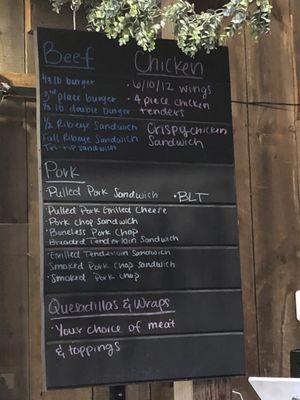 Beef
1/3 lb burger
3rd place burger
1/3 lb double burger
1/2 Ribeye Sandwich
Full Ribeye Sandwich
Tri-tip sandwich
Chicken
• 6/10/12 wings
• 4 piece chicken
tenders
Crispy chicken
Sandwich
Pork
Pulled Pork Sandwich • BLT
• Pulled Pork Grilled Cheese
• Pork chop sandwich
• Boneless Pork Chop
Breaded Tenderloin Sandwich
• Grilled Tenderloin Sandwich
• Smoked Pork Chop Sandwich
• Smoked Pork Chop
Quesadillas & Wraps
• Your choice of meat
& toppings